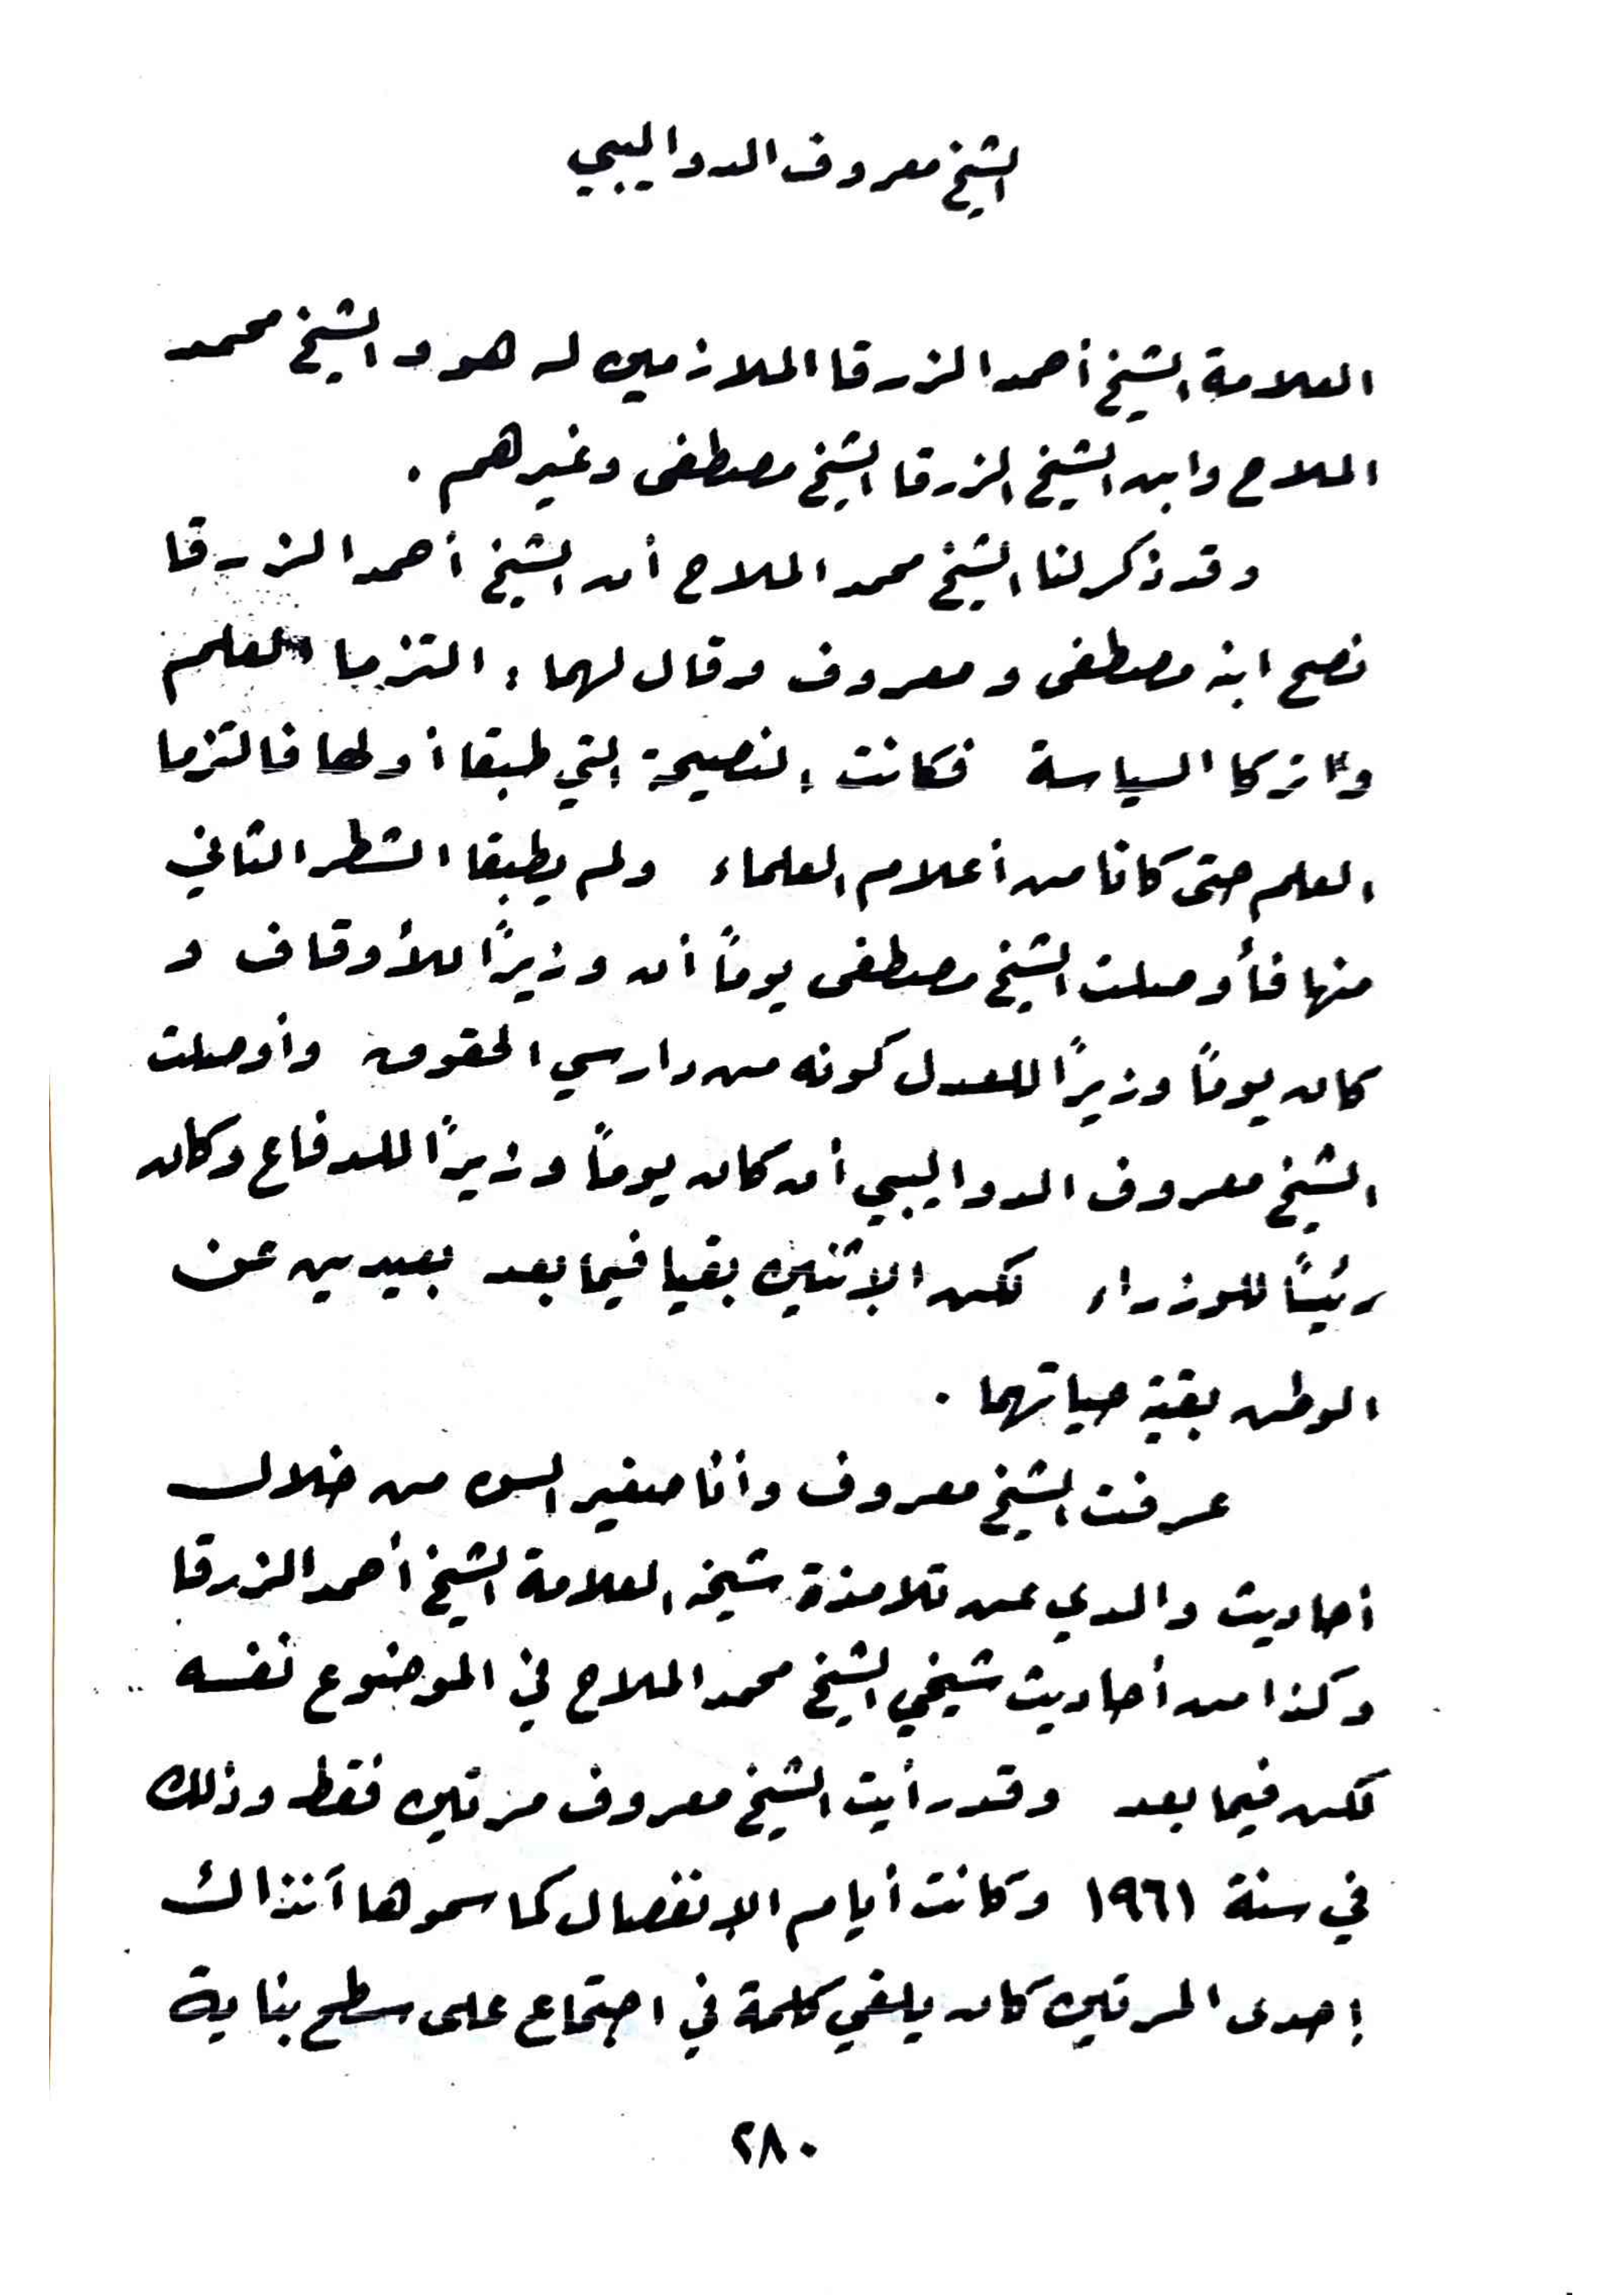 الشيخ معروف الدواليبي
العلامة الشيخ أحمد الزرقا الملازمين له هو والشيخ محمد
الملاح وابن الشيخ الزرقا الشيخ مصطفى وغيرهم .
وقد ذكر لنا الشيخ محمد الملاح أن الشيخ أحمد الزرقا
نصح ابنه مصطفى ومعروف وقال لهما : التزما العلم
واتركا السياسة فكانت النصيحة التي طبقا أولها فالتزما
العلم حتى كانا من أعلام العلماء ولم يطبقا الشطر الثاني
منها فأوصلت الشيخ مصطفى يوماً أن وزيراً للأوقاف و
كان يوماً وزيراً للعدل كونه من دارسي الحقوق وأوصلت
الشيخ معروف الدواليبي أن كان يوماً وزيراً للدفاع وكان
رئيساً للوزراء لكن الاثنين بقيا فيما بعد بعيدين عن
الوطن بقية حياتهما .
عرفت الشيخ معروف وأنا صغير السن من خلال
أحاديث والدي عن تلامذة شيخه العلامة الشيخ أحمد الزرقا
وكذا من أحاديث شيخي الشيخ محمد الملاح في الموضوع نفسه
لكن فيما بعد وقد رأيت الشيخ معروف مرتين فقط وذلك
في سنة ١٩٦١ وكانت أيام الانفصال كما سموها آنذاك
إحدى المرتين كان يلقي كلمة في اجتماع على سطح بناية
٢٨٠